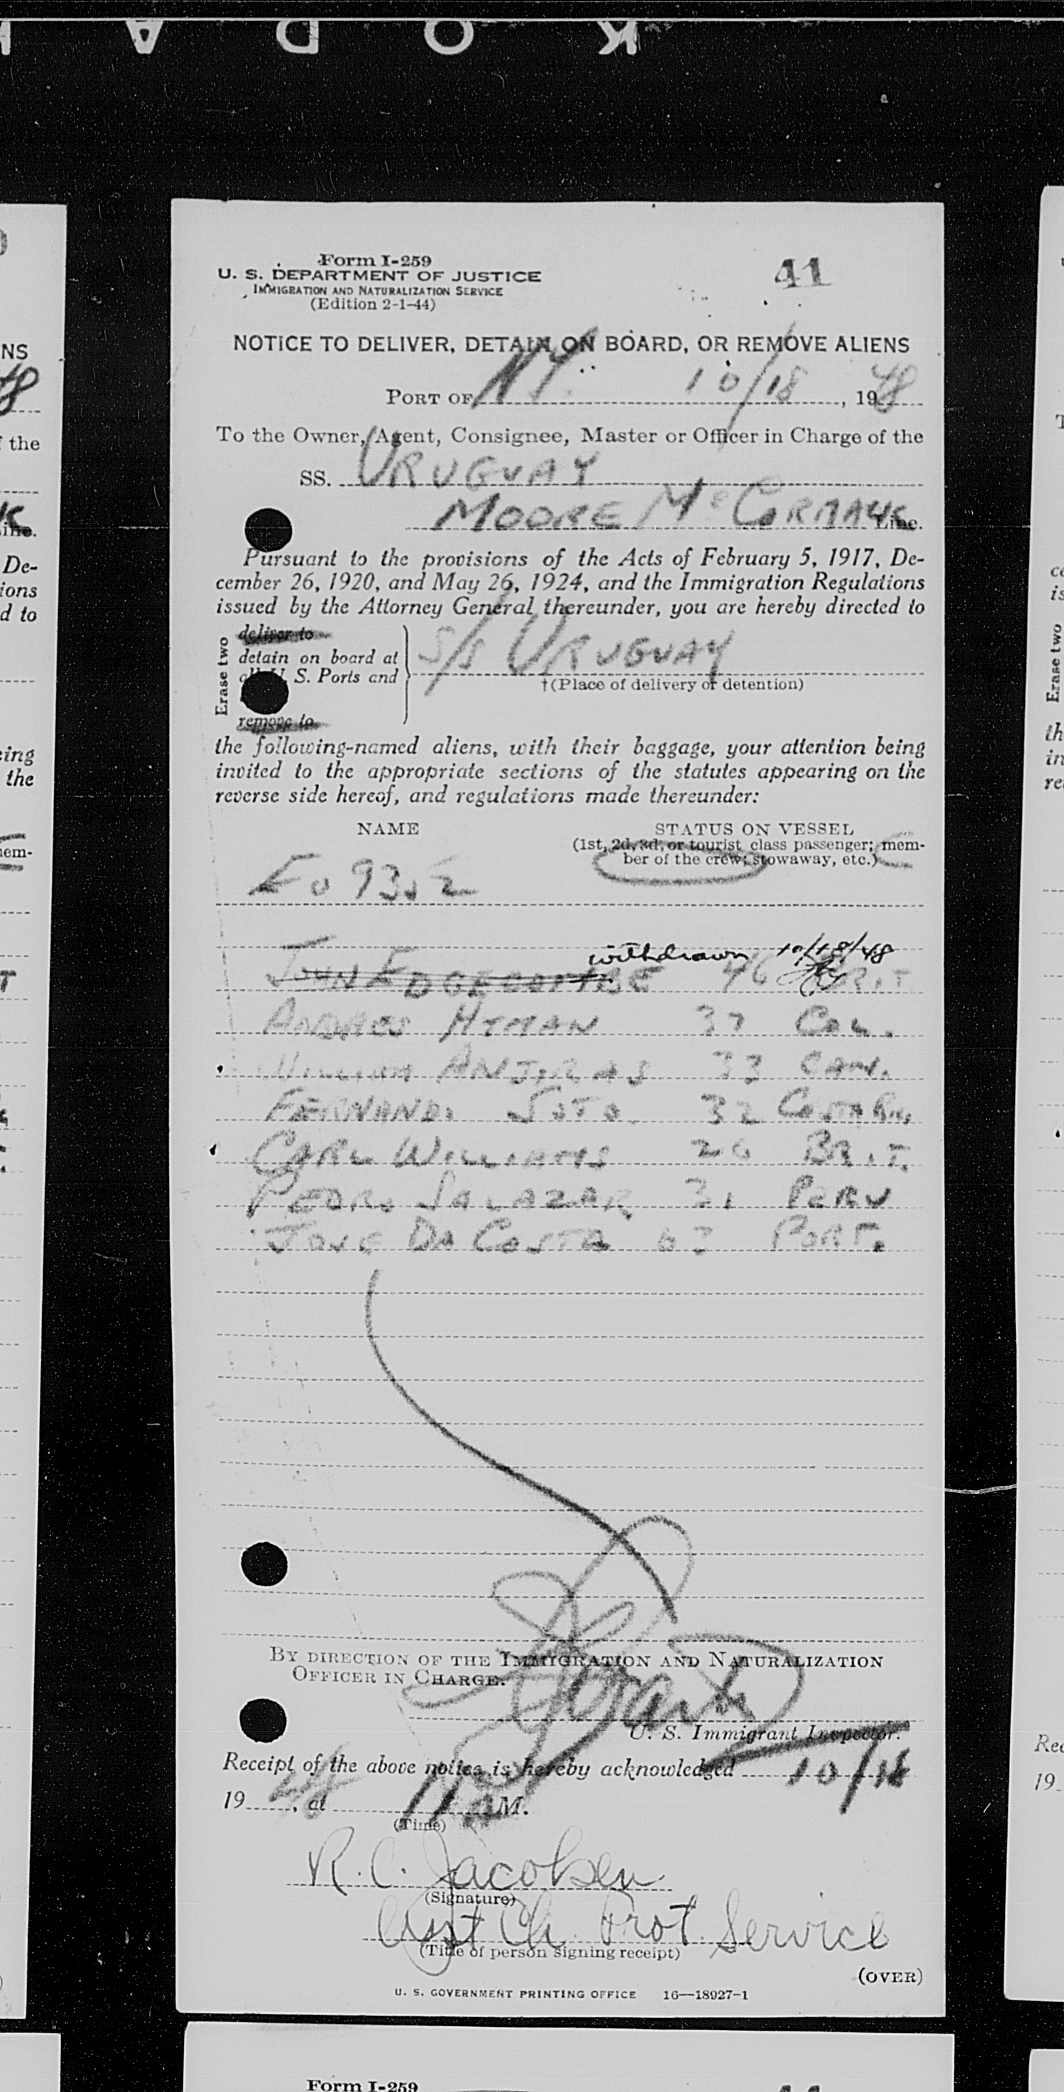 KODA
Form I-259
U. S. DEPARTMENT OF JUSTICE
IMMIGRATION AND NATURALIZATION SERVICE
(Edition 2-1-44)
41
NOTICE TO DELIVER, DETAIN ON BOARD, OR REMOVE ALIENS
PORT OF N.Y. 10/18, 1948
To the Owner, Agent, Consignee, Master or Officer in Charge of the
SS. URUGUAY
MOORE McCORMACK Line.
Pursuant to the provisions of the Acts of February 5, 1917, De-
cember 26, 1920, and May 26, 1924, and the Immigration Regulations
issued by the Attorney General thereunder, you are hereby directed to
Erase two
deliver to
detain on board at
all U. S. Ports and
remove to
S/S URUGUAY
†(Place of delivery or detention)
the following-named aliens, with their baggage, your attention being
invited to the appropriate sections of the statutes appearing on the
reverse side hereof, and regulations made thereunder:
NAME STATUS ON VESSEL
(1st, 2d, 3d, or tourist class passenger; mem-
ber of the crew; stowaway, etc.)
EO 9352
withdrawn 10/18/48
JOHN EDGECOMBE 46 BRIT.
ANDRES HYMAN 37 COL.
WILLIAM ANJIRAS 33 CAN.
FERNANDO SOTO 32 COSTA RIC.
CARL WILLIAMS 26 BRIT.
PEDRO SALAZAR 31 PERU
JOSE DA COSTA 63 PORT.
BY DIRECTION OF THE IMMIGRATION AND NATURALIZATION
OFFICER IN CHARGE.
U. S. Immigrant Inspector.
Receipt of the above notice is hereby acknowledged 10/18
1948, at 11 AM.
(Time)
R. C. Jacobsen
(Signature)
Asst Ch. Prot Service
(Title of person signing receipt)
(OVER)
U. S. GOVERNMENT PRINTING OFFICE 16—18927-1
Form I-259